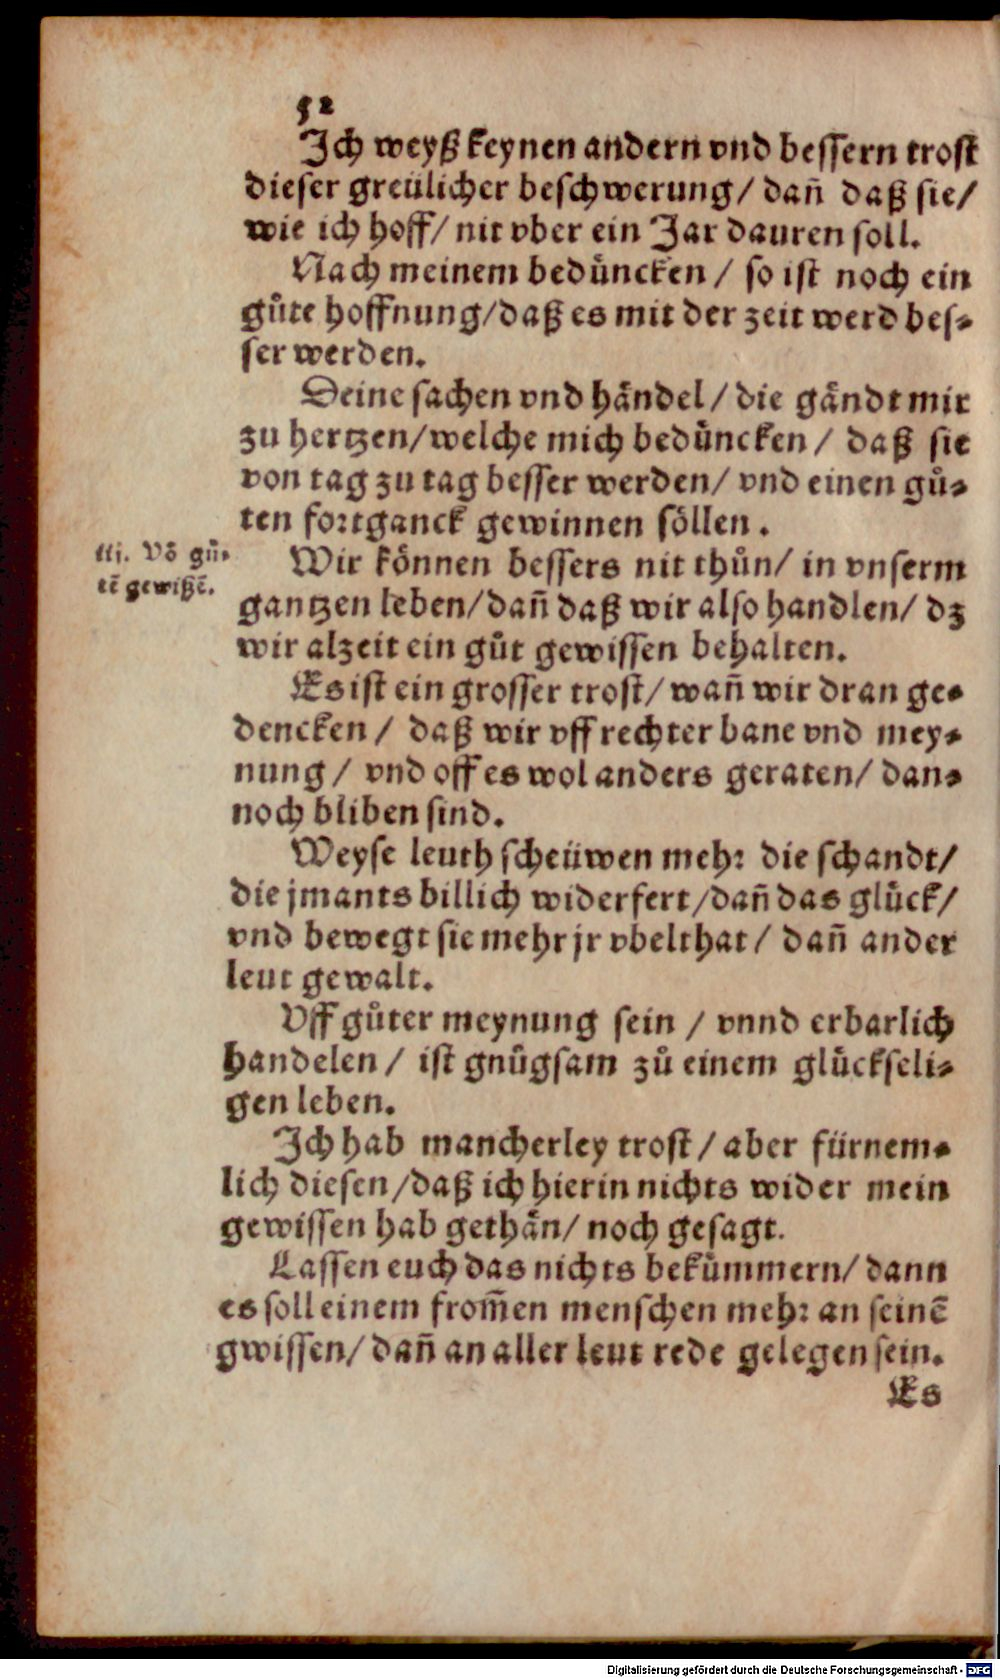 52
Ich weyß keynen andern vnd bessern trost
dieser greülicher beschwerung/ dañ daß sie/
wie ich hoff/ nit vber ein Jar dauren soll.
Nach meinem bedůncken / so ist noch ein
gůte hoffnung/daß es mit der zeit werd bes-
ser werden.
Deine sachen vnd håndel/ die gåndt mir
zu hertzen/welche mich bedůncken / daß sie
von tag zu tag besser werden/ vnd einen gů-
ten fortganck gewinnen söllen.
iij. Võ gů-
tẽ gewißẽ.
Wir können bessers nit thůn/ in vnserm
gantzen leben/dañ daß wir also handlen/ dz
wir alzeit ein gůt gewissen behalten.
Es ist ein grosser trost/ wañ wir dran ge-
dencken / daß wir vff rechter bane vnd mey-
nung / vnd off es wol anders geraten/ dan-
noch bliben sind.
Weyse leuth scheüwen mehr die schandt/
die jmants billich widerfert/dañ das glůck/
vnd bewegt sie mehr jr vbelthat / dañ ander
leut gewalt.
Vff gůter meynung sein / vnnd erbarlich
handelen / ist gnůgsam zů einem glůckseli-
gen leben.
Ich hab mancherley trost/ aber fürnem-
lich diesen/daß ich hierin nichts wider mein
gewissen hab gethån/ noch gesagt.
Lassen euch das nichts bekůmmern/ dann
es soll einem from̃en menschen mehr an seinẽ
gwissen/ dañ an aller leut rede gelegen sein.
Es
Digitalisierung gefördert durch die Deutsche Forschungsgemeinschaft - DFG